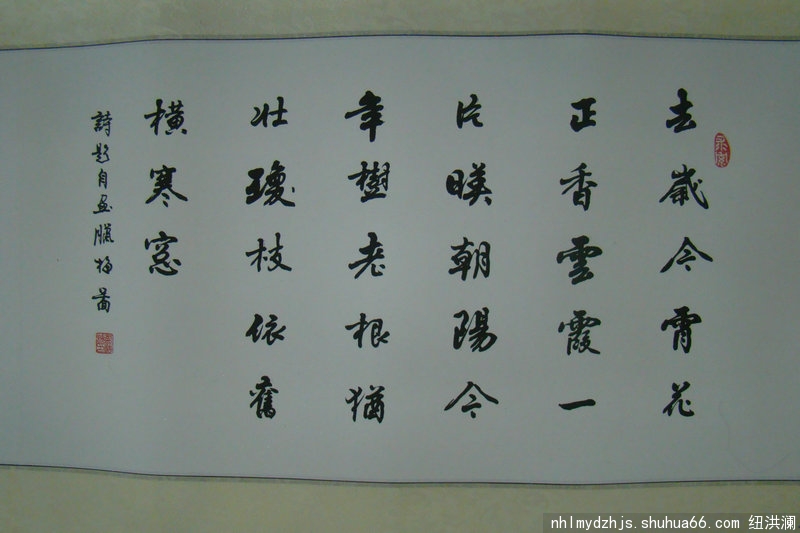 去歲今宵花
正香雲霞一
片暎朝陽今
年樹老根猶
壯瓊枝依舊
橫寒窓
詩題自画臘梅圖
nhlmydzhjs.shuhua66.com 纽洪澜